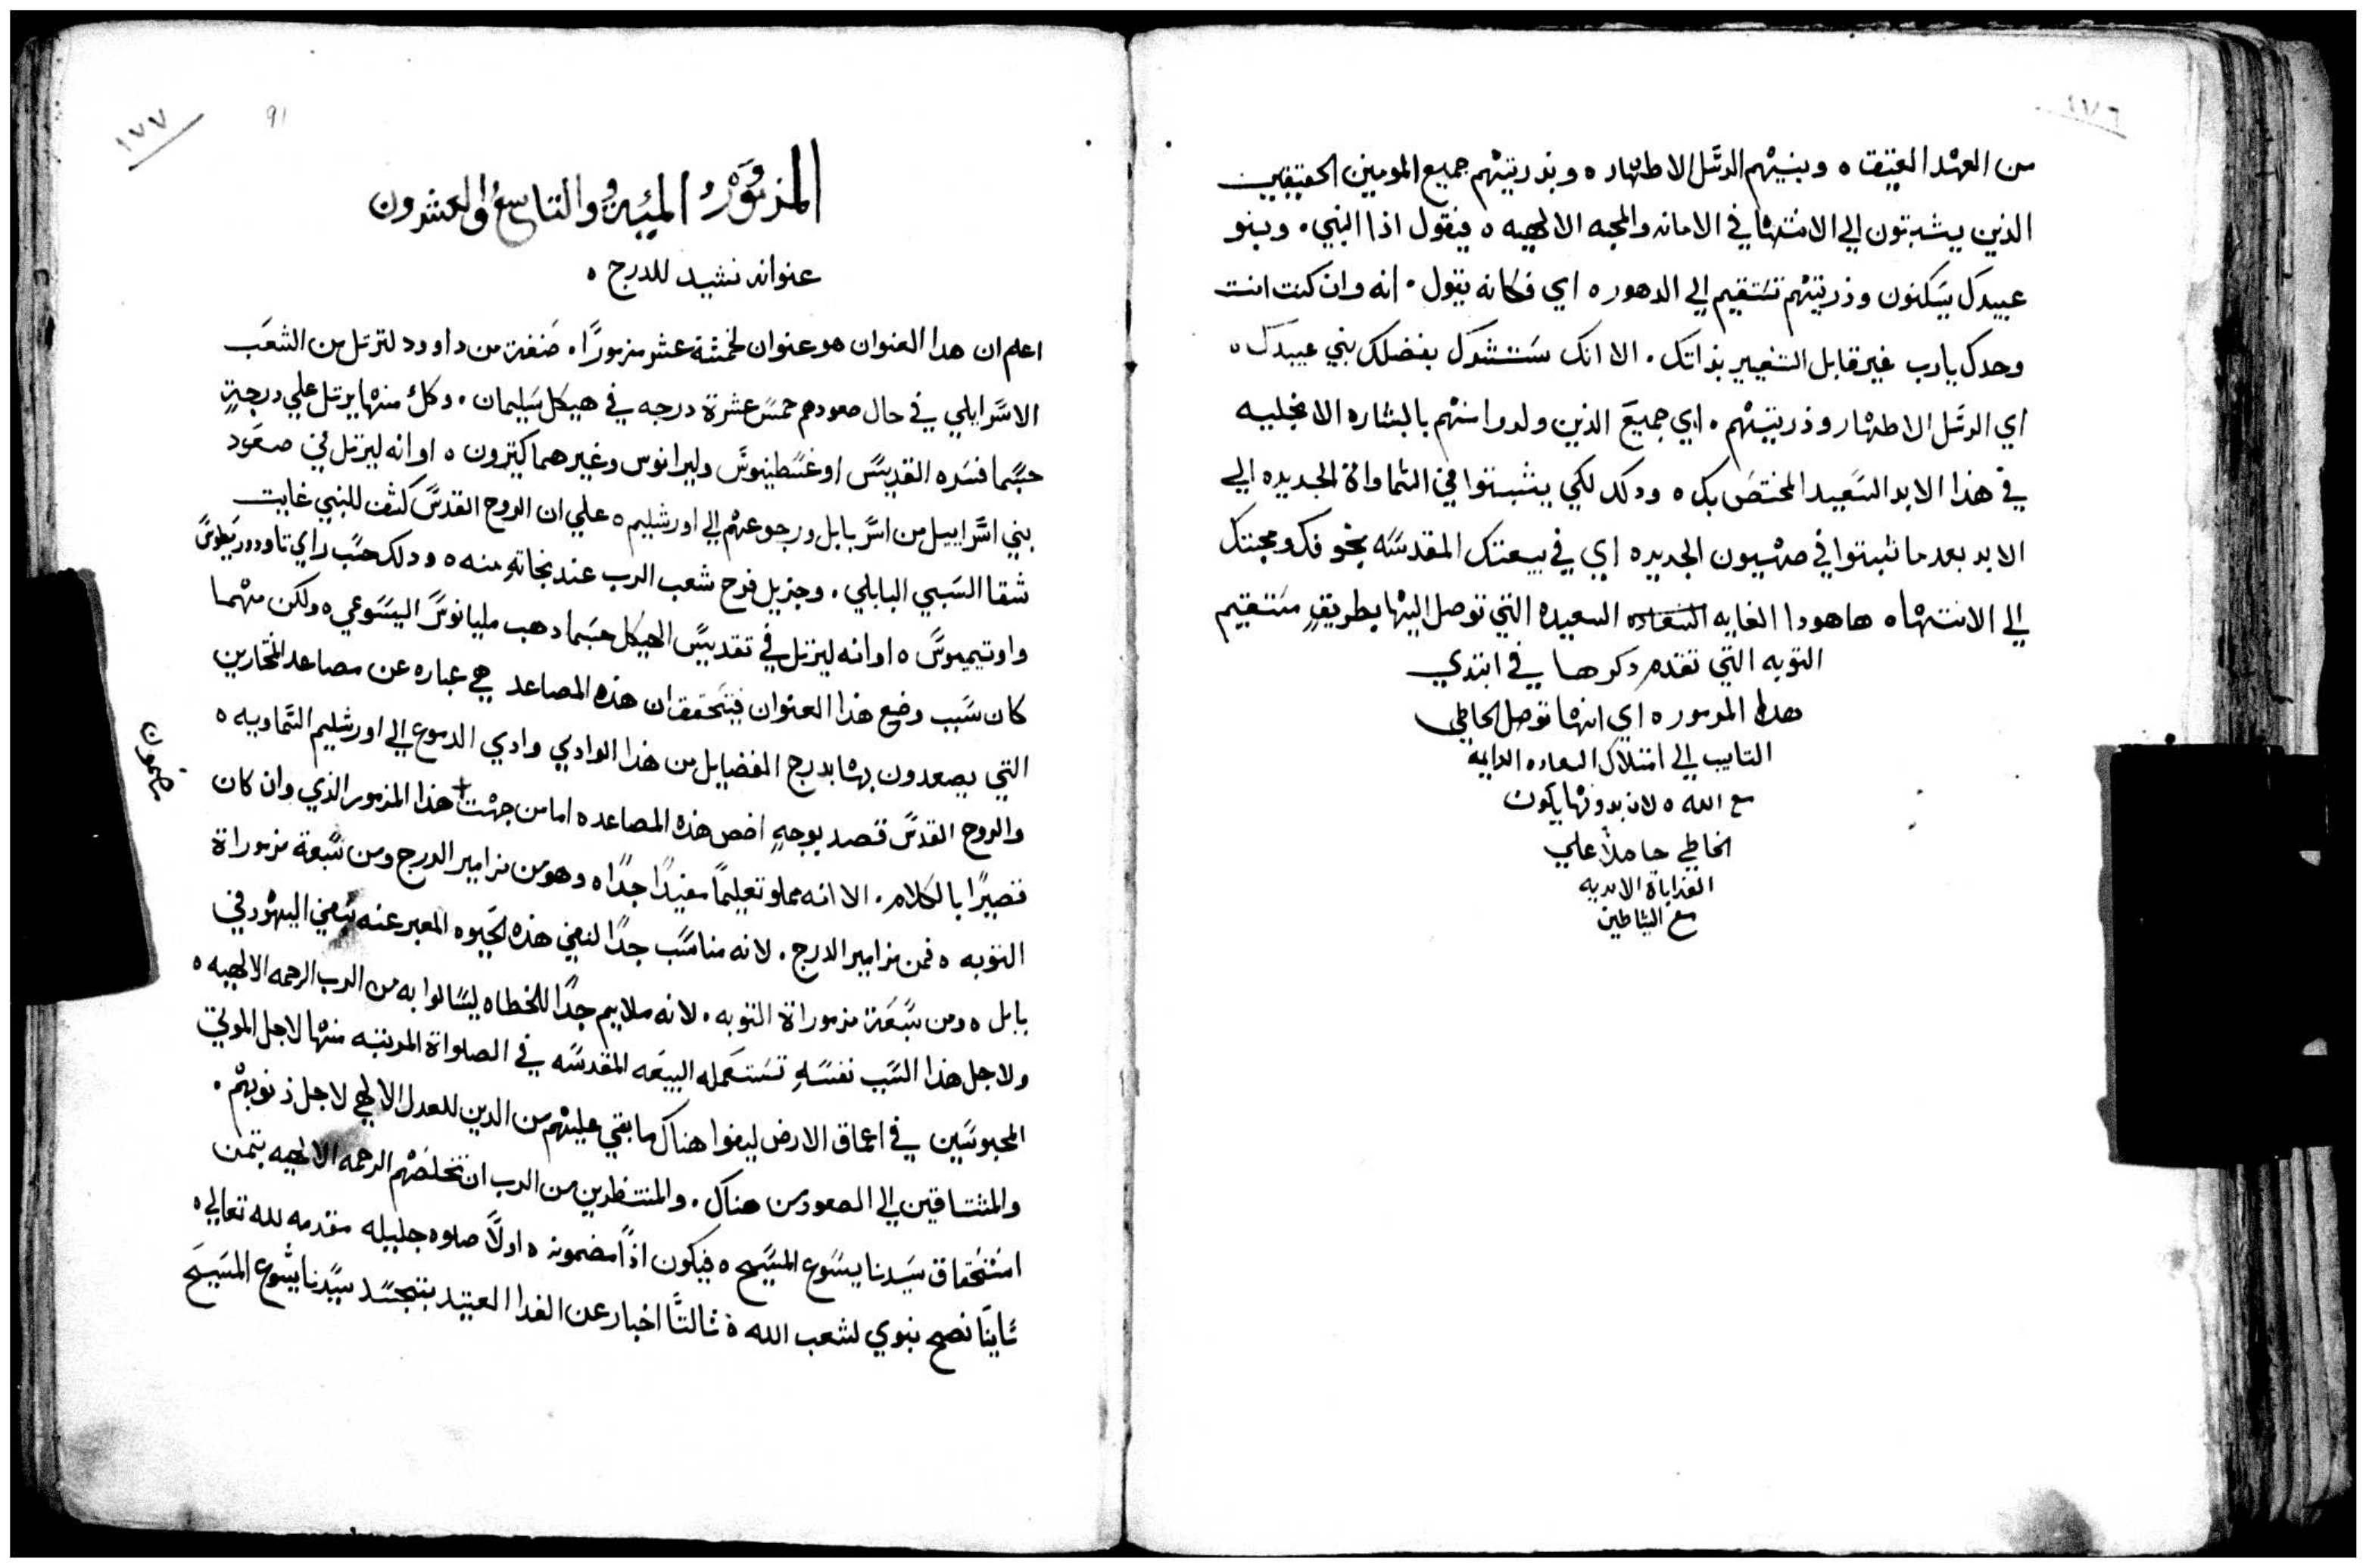 ١٧٦
من العهد العتيق ه وبنيهم الرسل الاطهار ه وبذريتهم جميع المومنين الحقيقيين
الذين يثبتون الي الانتها في الامانه والمحبه الالهيه ه فيقول اذا النبي ٠ وبنو
عبيدك يسكنون وذريتهم تستقيم الي الدهور ه اي فكانه يقول ٠ انه وان كنت انت
وحدك يارب غير قابل التغيير بذاتك ٠ الا انك بفضلك بني عبيدك ه
اي الرسل الاطهار وذريتهم ٠ اي جميع الذين ولدوا منهم بالبشاره الانجليه
في هذا الابد السعيد المختص بك ه ودلك لكي يثبتوا في السماواة الجديده الي
الابد بعد ما ثبتوا في صهيون الجديده اي في بيعتك المقدسه بخوفك ومحبتك
الي الانتها ه هاهودا الغايه السعاده السعيده التي توصل اليها بطريق مستقيم
التوبه التي تقدم دكرها في ابتدي
هدا المزمور ه اي انها توصل الخاطي
التايب الي امتلاك السعاده الدايمه
مع الله ه لان بدونها يكون
الخاطي حاصلاً علي
العذاباة الابديه
مع الشاطين
١٧٧
91
المزمور المئيه والتاسع والعشرون
عنوانه نشيد للدرج ه
اعلم ان هدا العنوان هو عنوان لخمسة عشر مزموراً ٠ صنفة من داوود لترتل من الشعب
الاسرايلي في حال صعودهم خمس عشرة درجه في هيكل سليمان ٠ وكل منها يرتل علي درجةٍ
حسبما فسره القديس اوغسطينوس وليرانوس وغيرهما كثيرون ه او انه ليرتل في صعود
بني اسراييل من اسر بابل ورجوعهم الي اورشليم ه علي ان الروح القدس كشف للنبي غايت
شقا السبي البابلي ٠ وجزيل فرح شعب الرب عند نجاته منه ه ودلك حسب راي تاودوريطوس
واوتيميوس ه او انه ليرتل في تقديس الهيكل حسبما دهب مليانوس اليسوعي ه ولكن مهما
كان سبب وضع هذا العنوان فيتحقق ان هذه المصاعد هي عباره عن مصاعد المختارين
التي يصعدون بها بدرج الفضايل من هذا الوادي وادي الدموع الي اورشليم السماويه ه
والروح القدس قصد بوجهٍ اخص هذه المصاعد ه اما من جهت + هذا المزمور الذي وان كان
مضمون
قصيراً بالكلام ٠ الا انه مملو تعليماً مفيداً جداً ه وهو من مزامير الدرج ومن سبعة مزموراة
التوبه ه فمن مزامير الدرج ٠ لانه مناسب جداً لنفي هذه الحيوه المعبر عنه بنفي اليهود في
بابل ه ومن سبعة مزموراة التوبه ٠ لانه ملايم جداً للخطاه ليسالوا به من الرب الرحمه الالهيه ه
ولاجل هذا السبب نفسهِ تستعمله البيعه المقدسه في الصلواة المرتبه منها لاجل الموتي
المحبوسين في اعماق الارض ليفوا هناك ما بقي عليهم من الدين للعدل الالهي لاجل ذنوبهم ٠
والمشتاقين الي الصعود من هناك ٠ والمنتظرين من الرب ان تخلصهم الرحمه الالهيه بثمن
استحقاق سيدنا يسوع المسيح ه فيكون اذاً مضمونه ه اولاً صلوه جليله مقدمه لله تعالي ه
ثانياً نصح نبوي لشعب الله ه ثالثاً اخبار عن الفدا العتيد بتجسد سيدنا يسوع المسيح